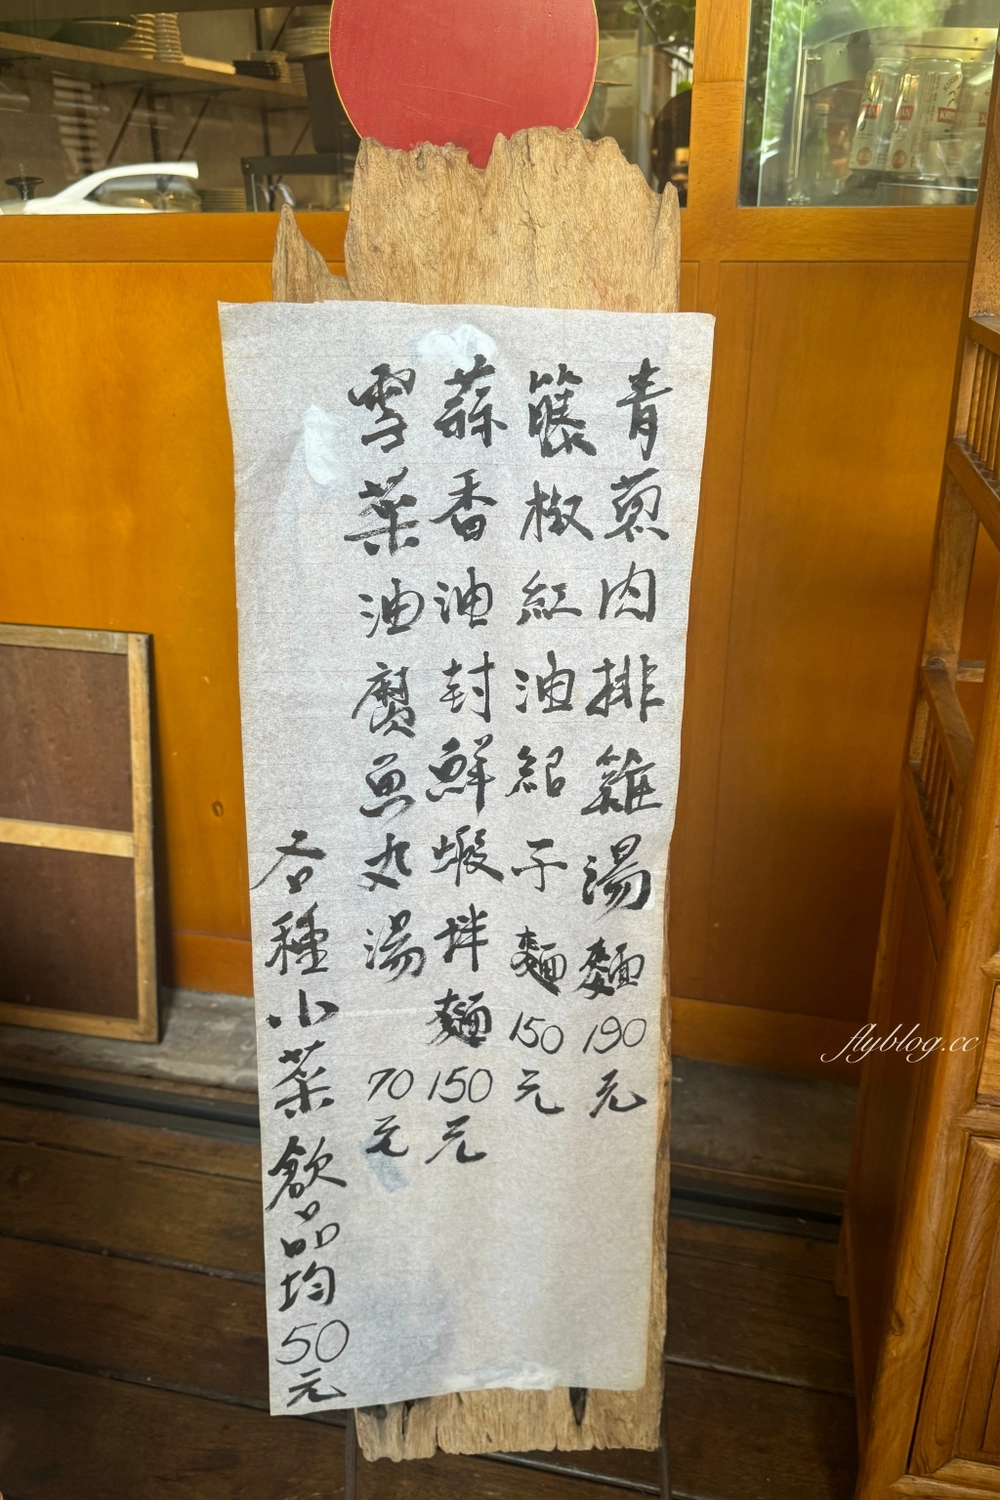 青蔥肉排雞湯麵190元
籐椒紅油紹子麵150元
蒜香油封鮮蝦拌麵150元
雪菜油腐魚丸湯70元
各種小菜飲品均50元
flyblog.cc